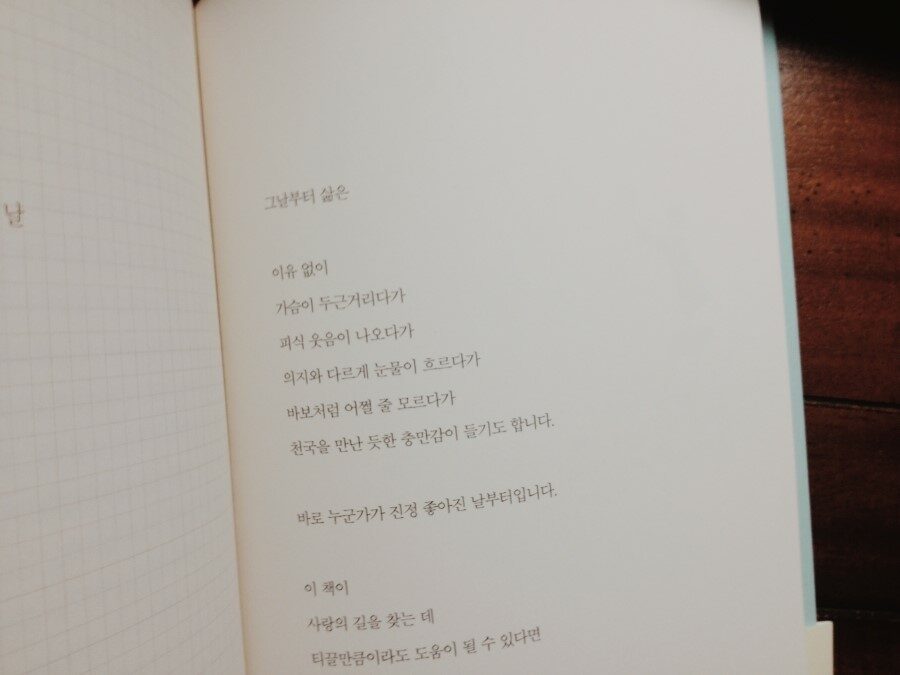 날
그날부터 삶은
이유 없이
가슴이 두근거리다가
피식 웃음이 나오다가
의지와 다르게 눈물이 흐르다가
바보처럼 어쩔 줄 모르다가
천국을 만난 듯한 충만감이 들기도 합니다.
바로 누군가가 진정 좋아진 날부터입니다.
이 책이
사랑의 길을 찾는 데
티끌만큼이라도 도움이 될 수 있다면